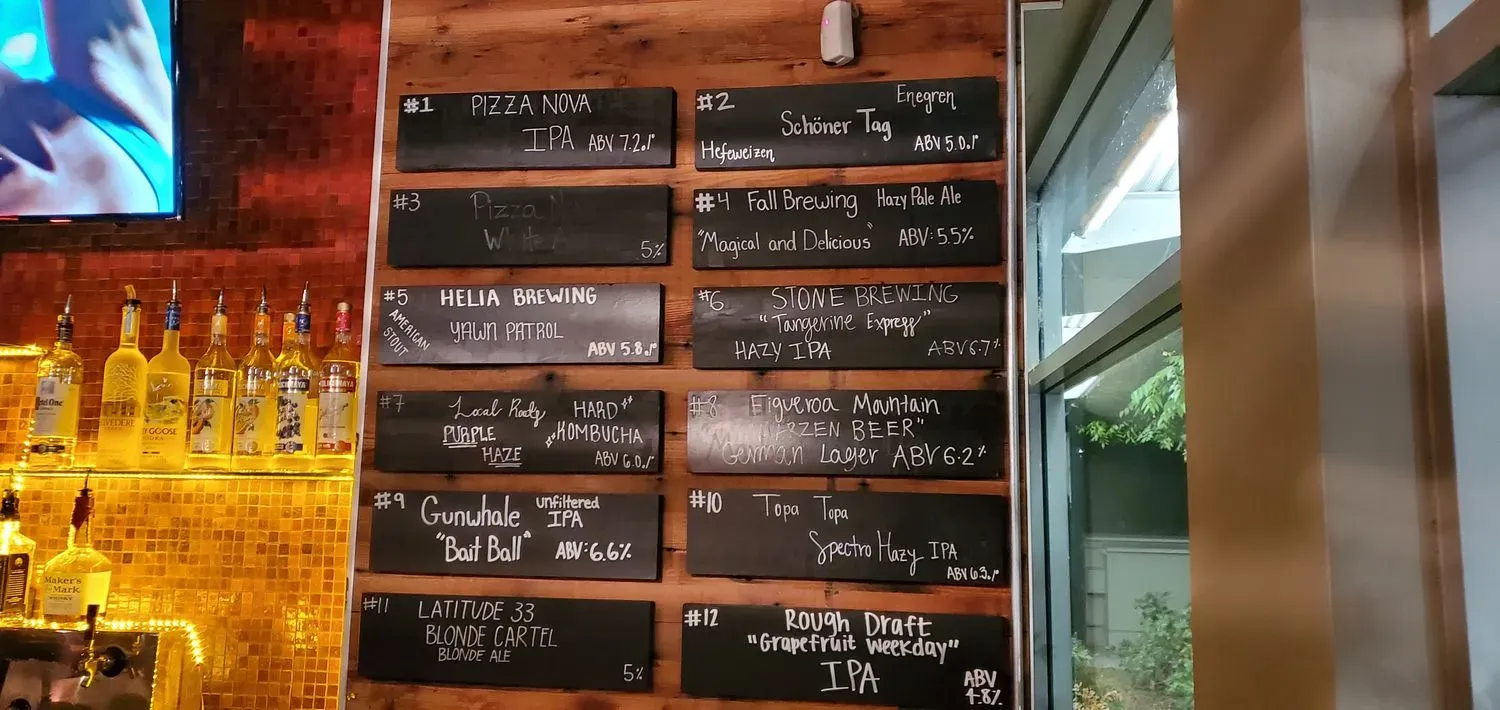 #1 PIZZA NOVA
IPA ABV 7.2%
#2 Enegren
Schöner Tag
Hefeweizen ABV 5.0%
#3 Pizza
White
5%
#4 Fall Brewing Hazy Pale Ale
"Magical and Delicious" ABV: 5.5%
#5 HELIA BREWING
AMERICAN STOUT
YAWN PATROL
ABV 5.8%
#6 STONE BREWING
"Tangerine Express"
HAZY IPA ABV 6.7%
#7 Local Roots HARD
PURPLE KOMBUCHA
HAZE ABV 6.0%
#8 Figueroa Mountain
BEER"
German Lager ABV 6.2%
#9 Gunwhale unfiltered
IPA
"Bait Ball" ABV: 6.6%
#10 Topa Topa
Spectro Hazy IPA
ABV 6.3%
#11 LATITUDE 33
BLONDE CARTEL
BLONDE ALE
5%
#12 ROUGH DRAFT
"Grapefruit Weekday"
IPA ABV
4.8%
Maker's
Mark